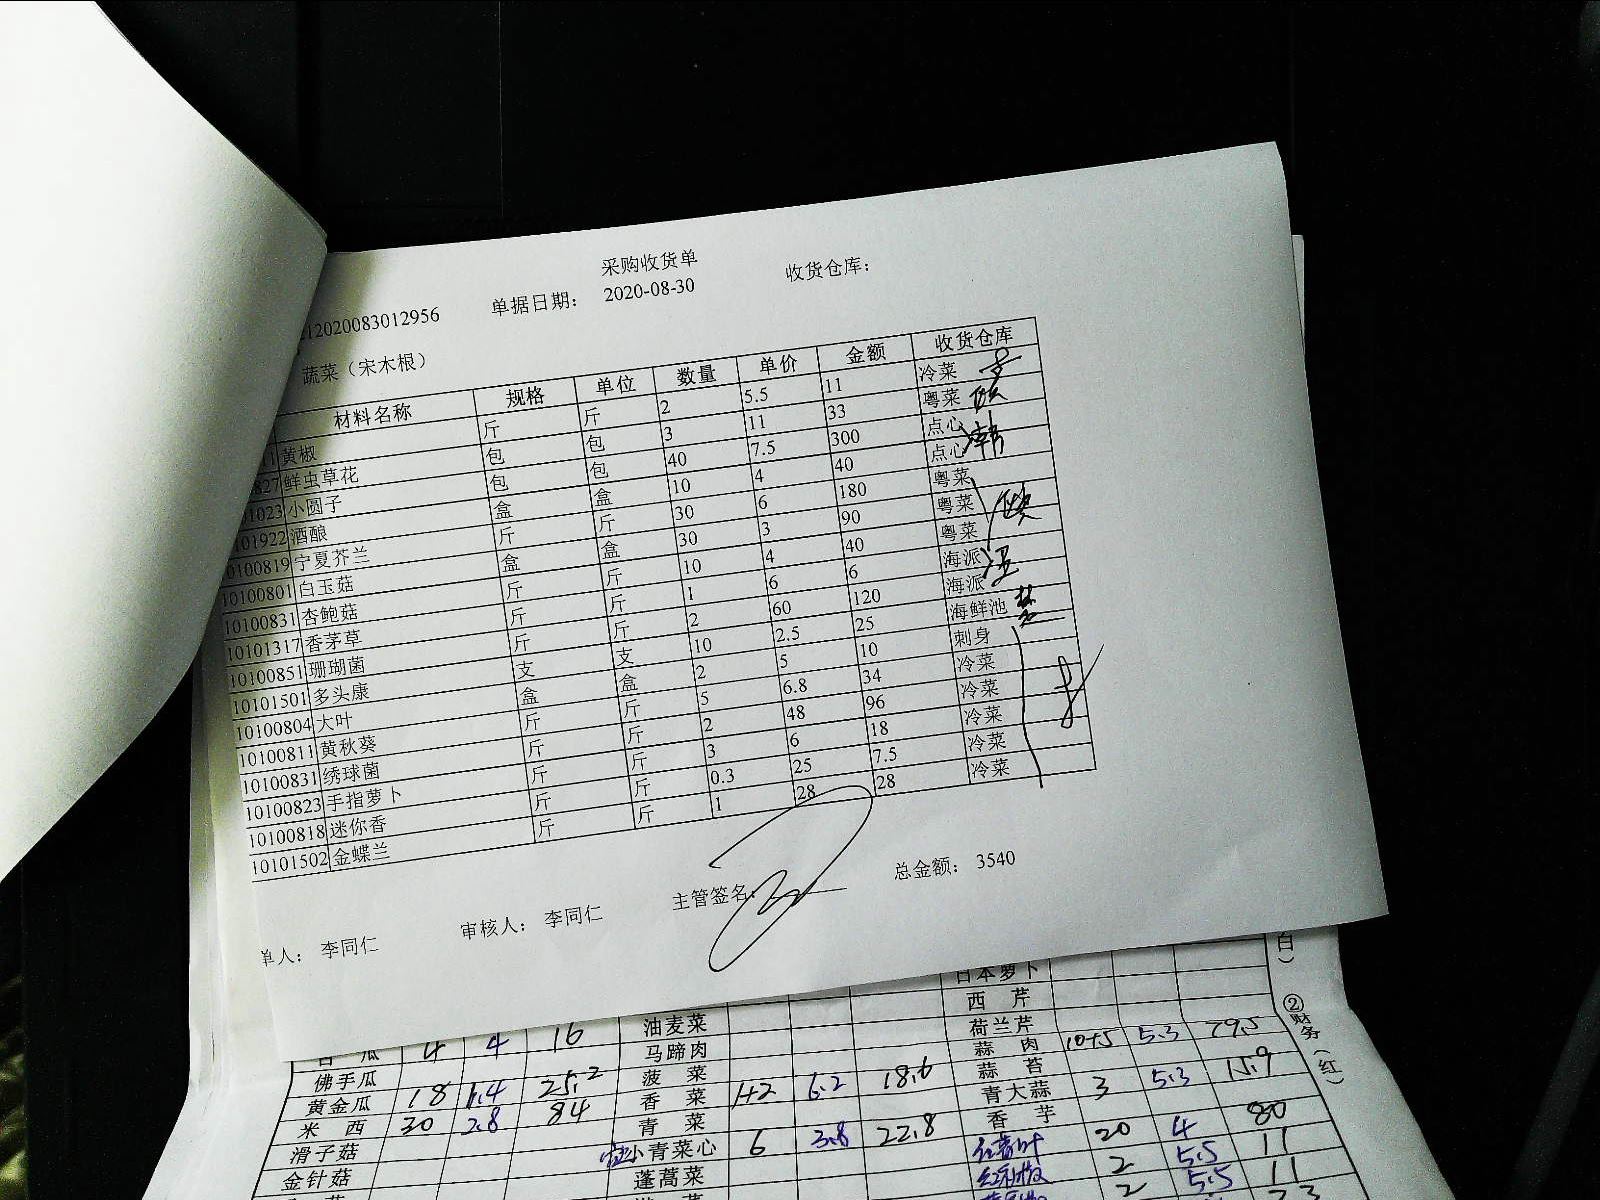 采购收货单
12020083012956 单据日期： 2020-08-30 收货仓库：
蔬菜（宋木根）
材料名称 规格 单位 数量 单价 金额 收货仓库
1 黄椒 斤 斤 2 5.5 11 冷菜
827 鲜虫草花 包 包 3 11 33 粤菜
1023 小圆子 包 包 40 7.5 300 点心
101922 酒酿 盒 盒 10 4 40 点心
10100819 宁夏芥兰 斤 斤 30 6 180 粤菜
10100801 白玉菇 盒 盒 30 3 90 粤菜
10100831 杏鲍菇 斤 斤 10 4 40 粤菜
10101317 香茅草 斤 斤 1 6 6 海派
10100851 珊瑚菌 斤 斤 2 60 120 海派
10101501 多头康 支 支 10 2.5 25 海鲜池
10100804 大叶 盒 盒 2 5 10 刺身
10100811 黄秋葵 斤 斤 5 6.8 34 冷菜
10100831 绣球菌 斤 斤 2 48 96 冷菜
10100823 手指萝卜 斤 斤 3 6 18 冷菜
10100818 迷你香 斤 斤 0.3 25 7.5 冷菜
10101502 金蝶兰 斤 斤 1 28 28 冷菜
单人： 李同仁 审核人： 李同仁 主管签名： 总金额： 3540
日本萝卜
西芹
油麦菜 荷兰芹
瓜 4 4 16 马蹄肉 蒜肉 10+5 5.3 79.5
佛手瓜 菠菜 蒜苔
黄金瓜 18 1.4 25.2 香菜 1+2 6.2 18.6 青大蒜 3 5.3 15.9
米西 30 2.8 84 青菜 香芋
滑子菇 小青菜心 6 3.8 22.8 红薯叶 20 4 80
金针菇 蓬蒿菜 红利椒 2 5.5 11
2 5.5 11
白）
②财务（红）